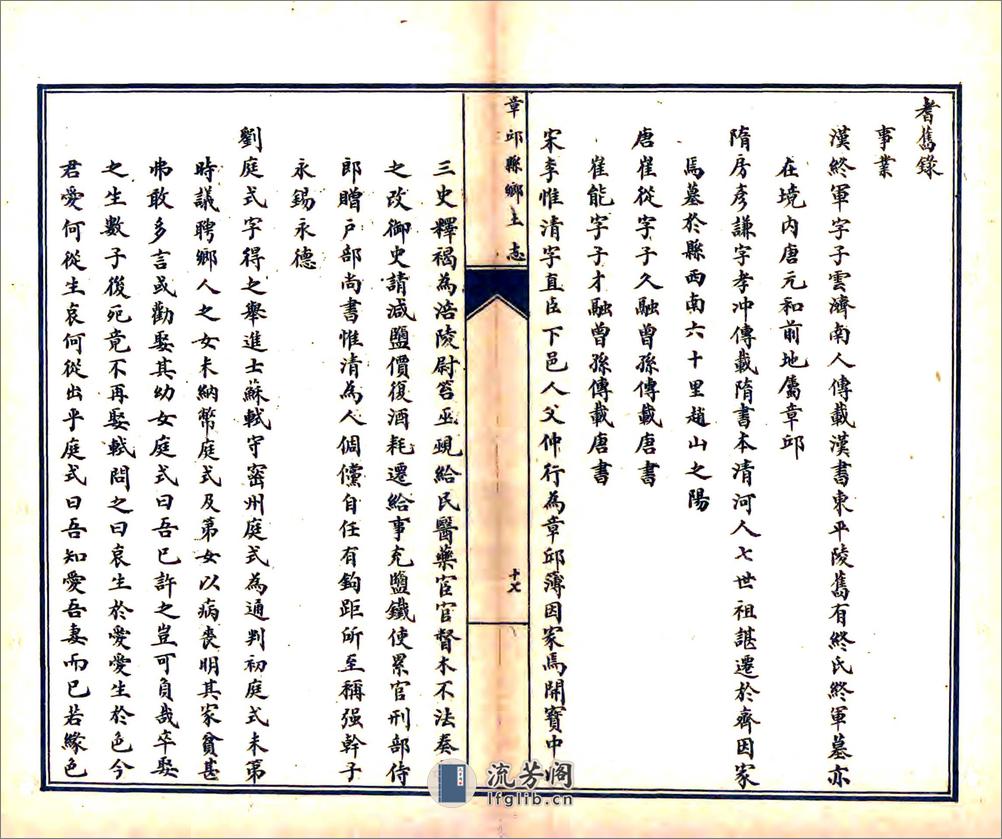 耆舊錄
事業
漢終軍字子雲濟南人傳載漢書東平陵舊有終氏終軍墓亦
在境内唐元和前地屬章邱
隋房彥謙字孝冲傳載隋書本清河人七世祖諶遷於齊因家
焉墓於縣西南六十里趙山之陽
唐崔從字子乂融曾孫傳載唐書
崔能字子才融曾孫傳載唐書
宋李惟清字直臣下邑人父仲行為章邱簿因家焉開寶中
章邱縣鄉土志
十七
三史釋褐為涪陵尉笞巫覡給民醫藥宦官督木不法奏
之改御史請減鹽價復酒耗遷給事充鹽鐵使累官刑部侍
郎贈戶部尚書惟清為人倜儻自任有鉤距所至稱强幹子
永錫永德
劉庭式字得之舉進士蘇軾守密州庭式為通判初庭式未第
時議聘鄉人之女未納幣庭式及第女以病喪明其家貧甚
弗敢多言或勸娶其幼女庭式曰吾已許之豈可負哉卒娶
之生數子後死竟不再娶軾問之曰哀生於愛愛生於色今
君愛何從生哀何從出乎庭式曰吾知愛吾妻而已若緣色
流芳阁
lfglib.cn